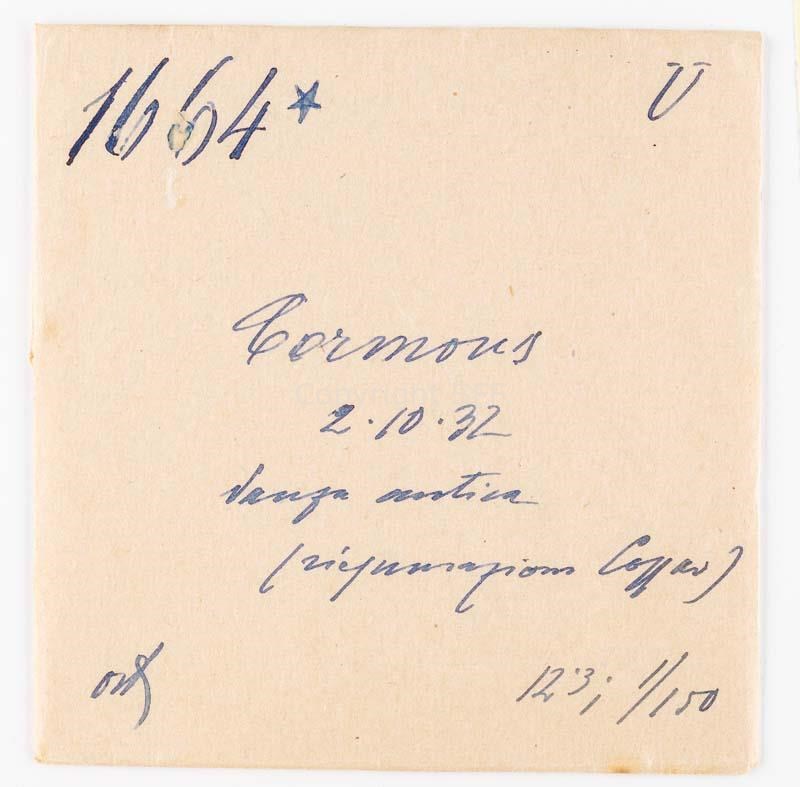 1664* U
Cormons
2.10.32
danza antica
(riesumazione
12:3; 1/150